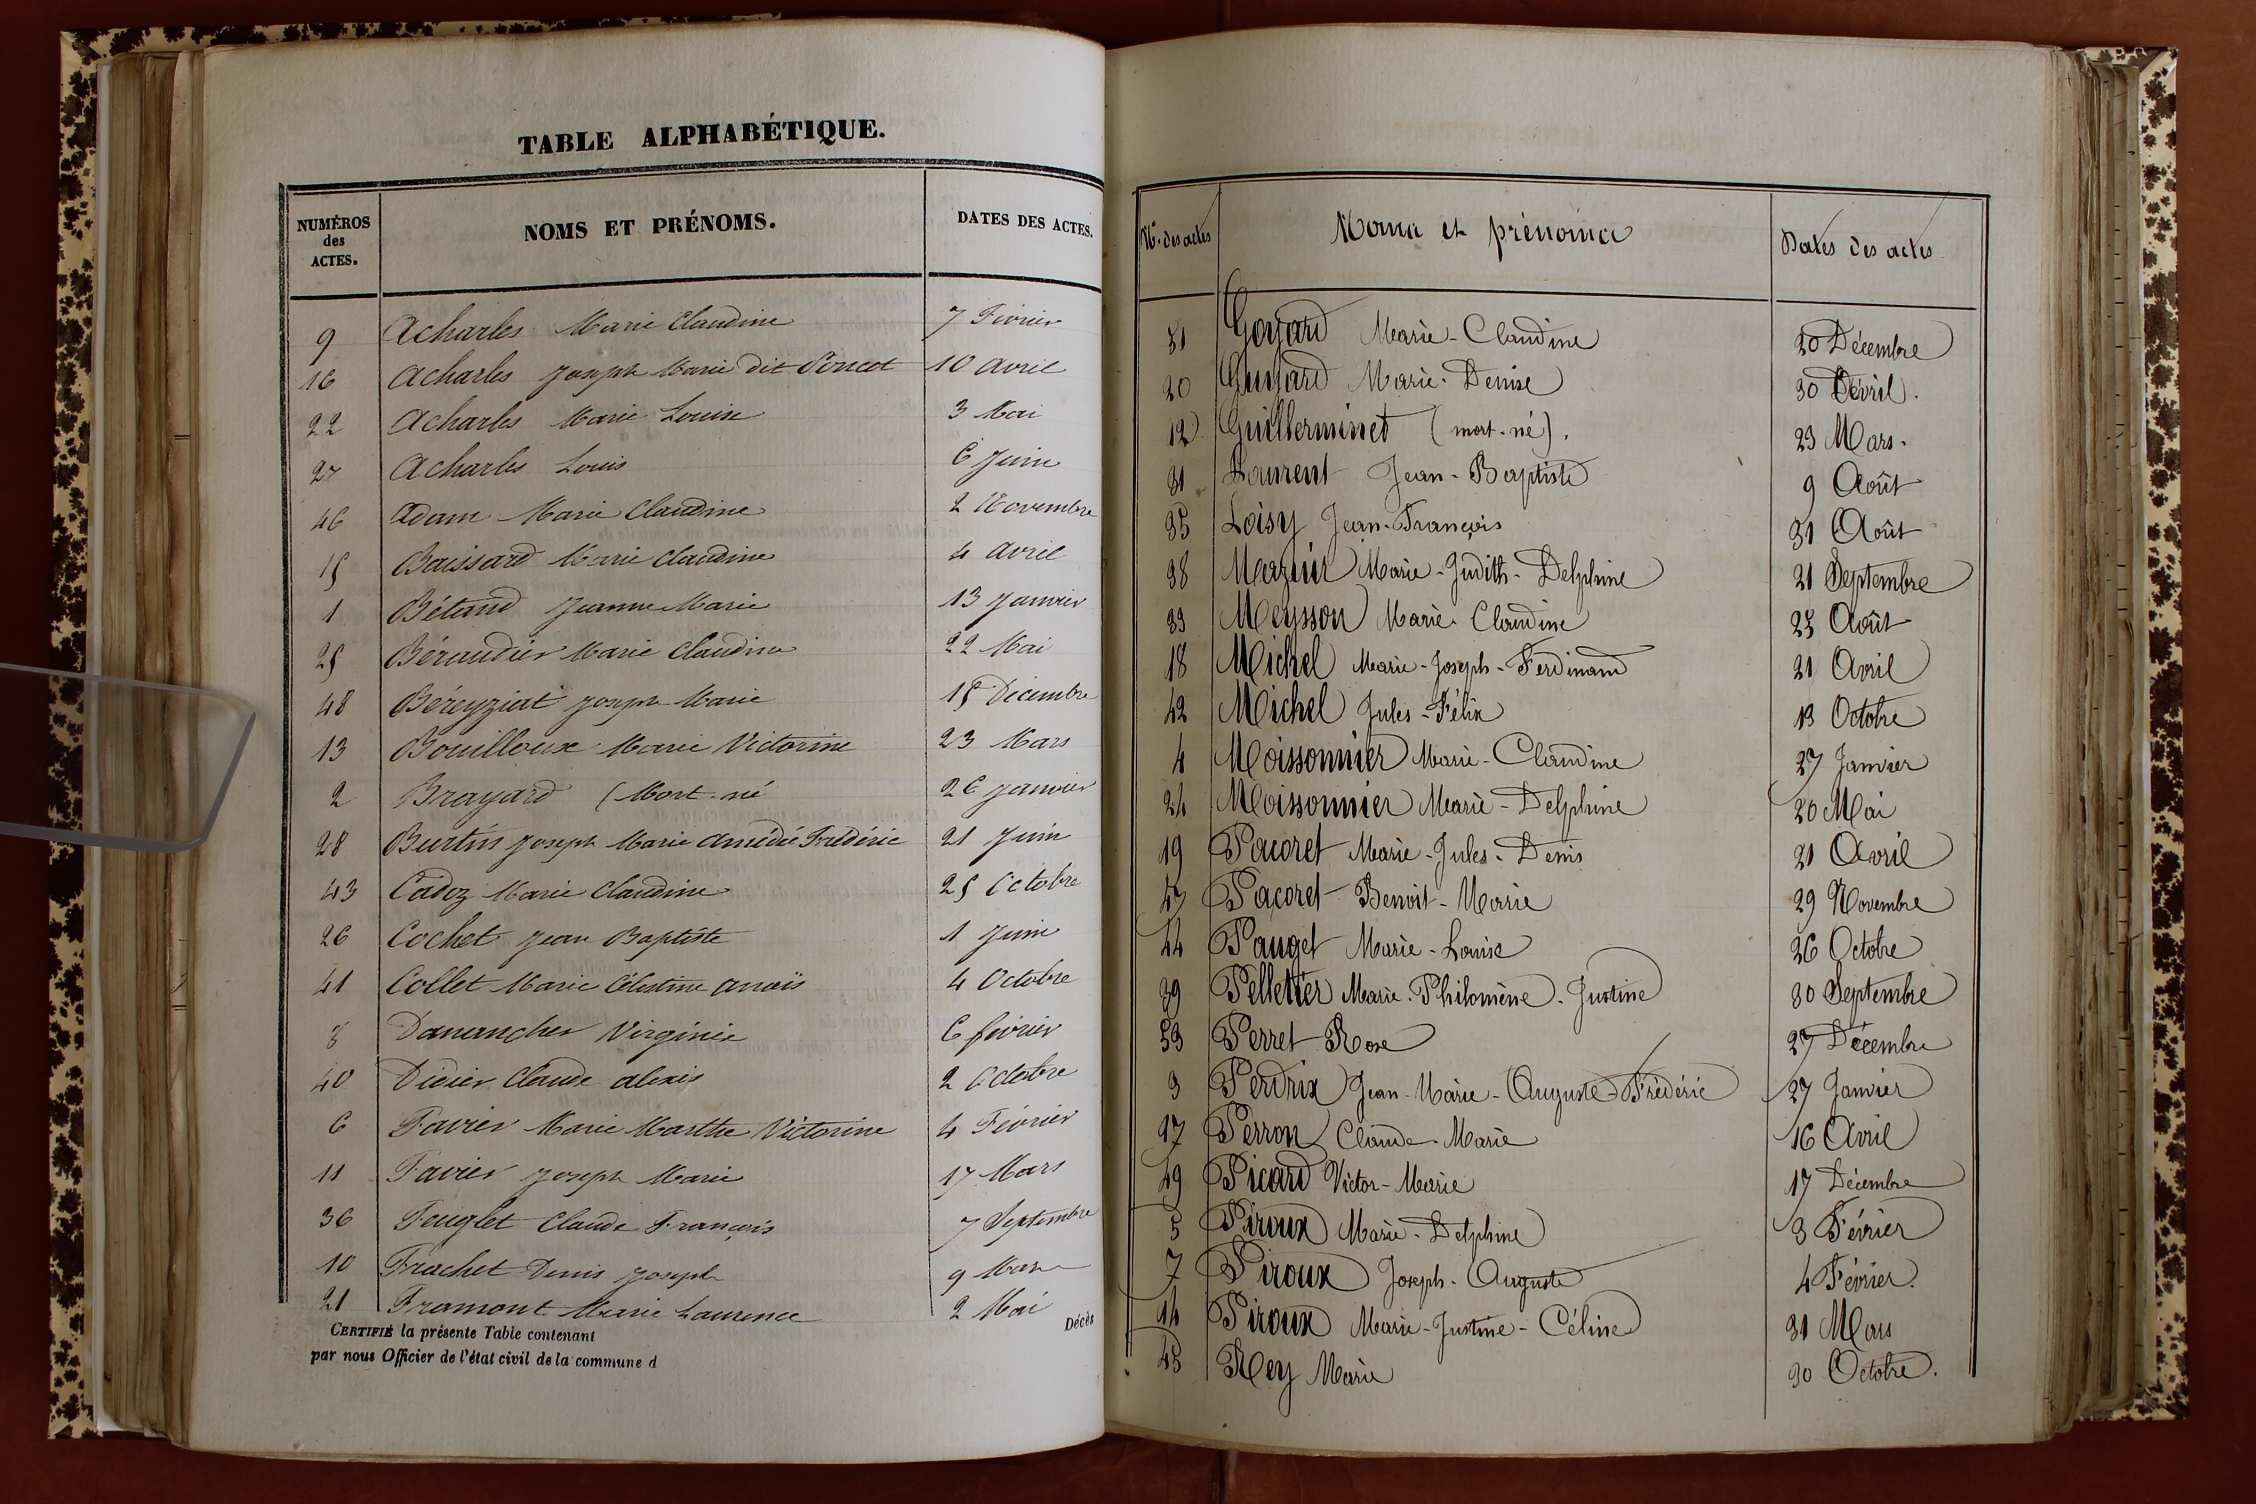 TABLE ALPHABÉTIQUE.
NUMÉROS des ACTES. NOMS ET PRÉNOMS. DATES DES ACTES.
9 Acharles Marie Claudine 7 Février
16 Acharles Joseph Marie dit Poncet 10 Avril
22 Acharles Marie Louise 3 Mai
27 Acharles Louis 6 Juin
46 Adam Marie Claudine 2 Novembre
15 Baissard Marie Claudine 4 Avril
1 Bétand Jeanne Marie 13 Janvier
25 Béraudier Marie Claudine 22 Mai
48 Béreyziat Joseph Marie 15 Décembre
13 Bouilloux Marie Victorine 23 Mars
2 Brayard (Mort-né 26 Janvier
28 Burtin Joseph Marie Amédée Frédéric 21 Juin
43 Cadoz Marie Claudine 25 Octobre
26 Cochet Jean Baptiste 1 Juin
41 Collet Marie Célestine Anaïs 4 Octobre
8 Danancher Virginie 6 février
40 Didier Claude Alexis 2 Octobre
6 Favier Marie Marthe Victorine 4 Février
11 Favier Joseph Marie 17 Mars
36 Feuglet Claude François 7 Septembre
10 Frachet Denis Joseph 9 Mars
21 Framont Marie Laurence 2 Mai
Décès
CERTIFIÉ la présente Table contenant
par nous Officier de l'état civil de la commune d
Nos des actes Noms et prénoms Dates des actes
51 Goyard Marie-Claudine 20 Décembre
20 Guyard Marie-Denise 30 Avril.
12 Guillerminet (mort-né). 23 Mars.
31 Laurent Jean-Baptiste 9 Août
35 Loisy Jean-François 31 Août
38 Mazuir Marie-Judith-Delphine 21 Septembre
33 Meysson Marie-Claudine 25 Août
18 Michel Marie-Joseph-Ferdinand 21 Avril
42 Michel Jules-Félix 13 Octobre
4 Moissonnier Marie-Claudine 27 Janvier
24 Moissonnier Marie-Delphine 20 Mai
19 Pacoret Marie-Jules-Denis 21 Avril
47 Pacoret Benoit-Marie 29 Novembre
44 Pauget Marie-Louise 26 Octobre
39 Pelletier Marie-Philomène-Justine 30 Septembre
53 Perret Rose 27 Décembre
3 Perdrix Jean-Marie-Auguste-Frédéric 27 Janvier
17 Perron Claude-Marie 16 Avril
49 Picard Victor-Marie 17 Décembre
5 Piroux Marie-Delphine 3 Février
7 Piroux Joseph-Auguste 4 Février.
14 Piroux Marie-Justine-Céline 31 Mars
45 Rey Marie 30 Octobre.